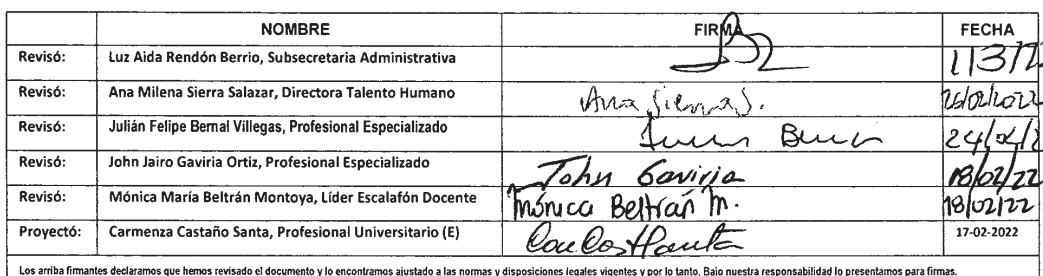 NOMBRE FIRMA FECHA
Revisó: Luz Aida Rendón Berrio, Subsecretaria Administrativa 1/3/22
Revisó: Ana Milena Sierra Salazar, Directora Talento Humano Ana Sierra S. 25/02/2022
Revisó: Julián Felipe Bernal Villegas, Profesional Especializado
Revisó: John Jairo Gaviria Ortiz, Profesional Especializado John Gaviria 18/02/22
Revisó: Mónica María Beltrán Montoya, Líder Escalafón Docente Mónica Beltrán M. 18/02/22
Proyectó: Carmenza Castaño Santa, Profesional Universitario (E) 17-02-2022
Los arriba firmantes declaramos que hemos revisado el documento y lo encontramos ajustado a las normas y disposiciones legales vigentes y por lo tanto. Bajo nuestra responsabilidad lo presentamos para firmas.